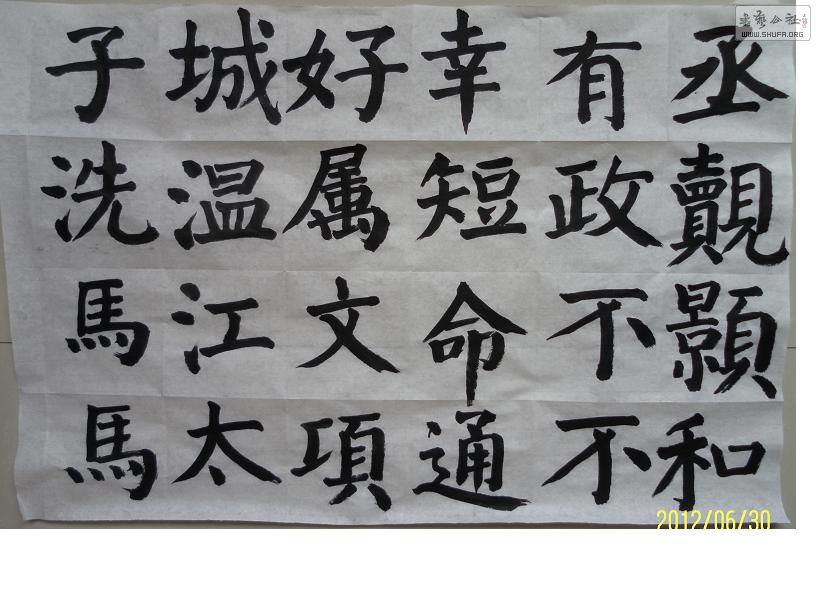 丞覿顥和
有政不不
幸短命通
好属文項
城温江太
子洗馬馬
書藝公社
WWW.SHUFA.ORG
2012/06/30